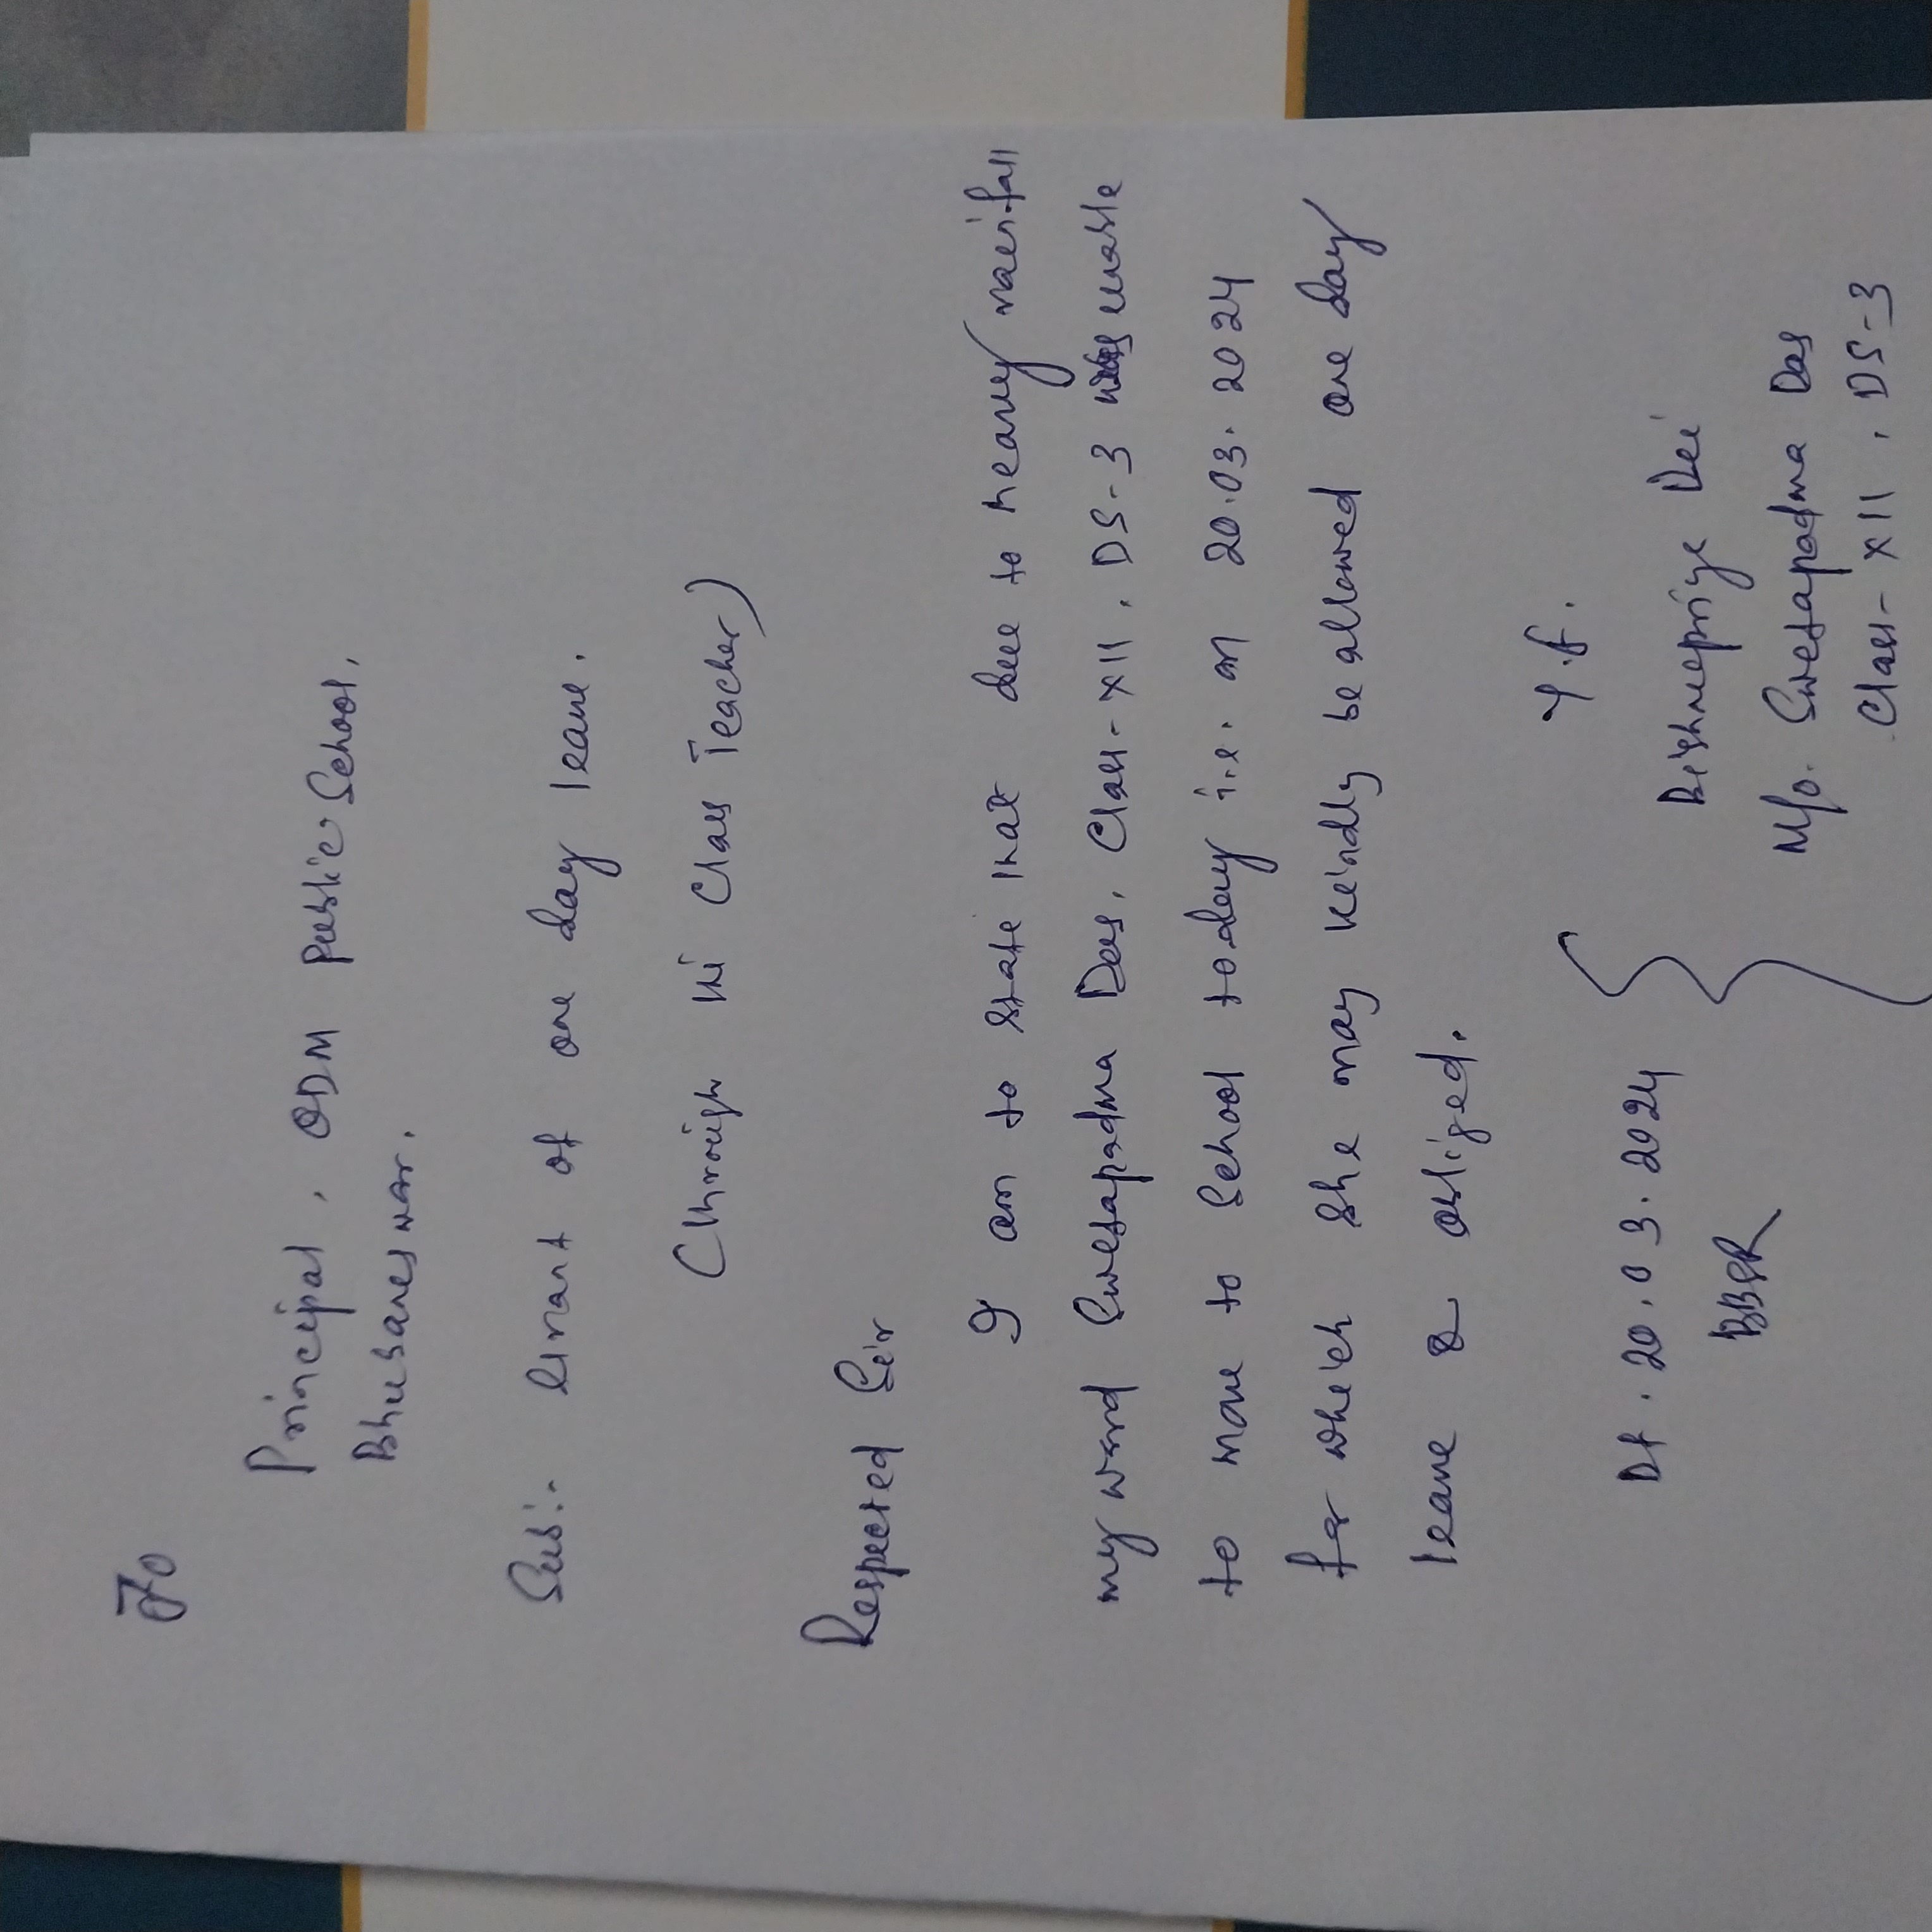 To
Principal, ODM Public School,
Bhubaneswar.
Sub:- Grant of one day leave.
(Through the Class Teacher)
Respected Sir
I am to state that due to heavy rainfall
my ward Swetapadma Das, Class-XII, DS-3 was unable
to move to School today i.e. on 20.03.2024
for which she may kindly be allowed one day
leave & obliged.
Y.f.
Dt. 20.03.2024
BBSR
Bishnupriya Dei
M/o. Swetapadma Das
Class-XII, DS-3